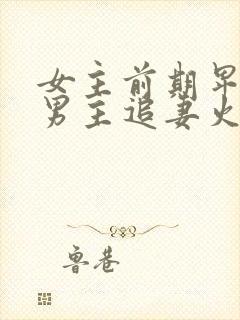 女主前期卑
男主追妻火
鲁巷